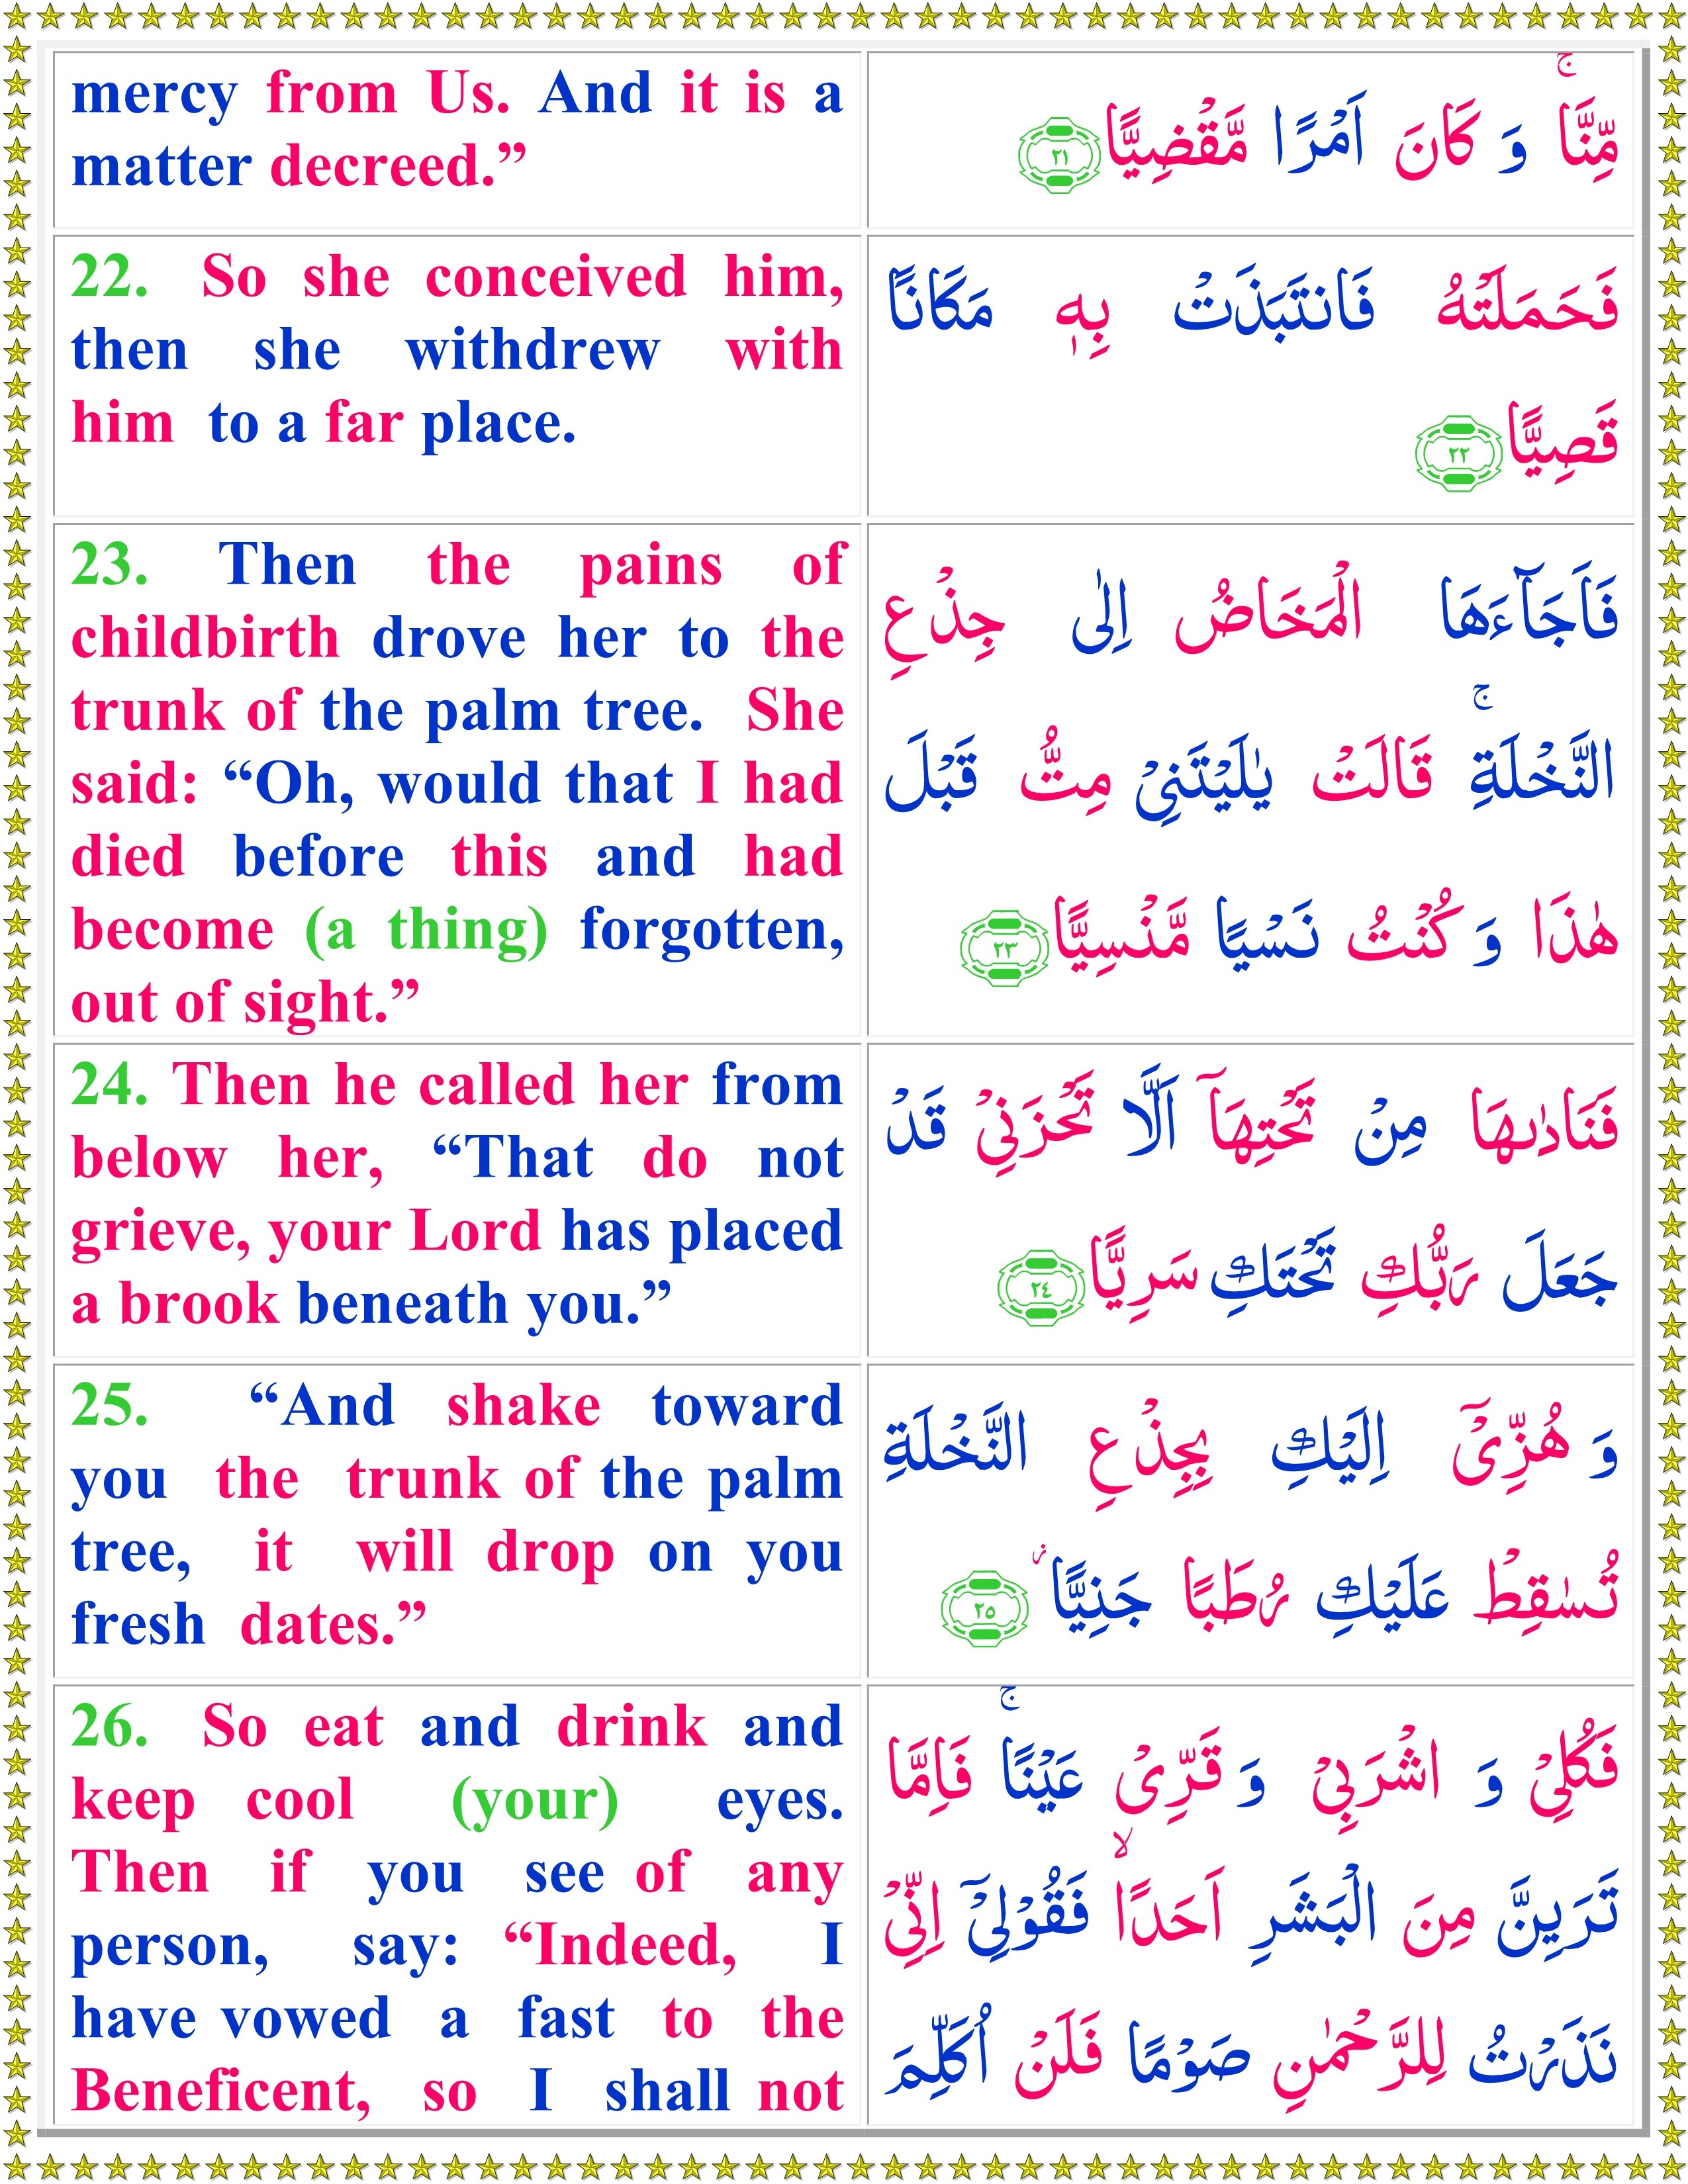 mercy from Us. And it is a
matter decreed.”
مِّنَّا ۚ وَ كَانَ اَمْرًا مَّقْضِيًّا ٢١
22. So she conceived him,
then she withdrew with
him to a far place.
فَحَمَلَتْهُ فَانتَبَذَتْ بِهٖ مَكَانًا
قَصِيًّا ٢٢
23. Then the pains of
childbirth drove her to the
trunk of the palm tree. She
said: “Oh, would that I had
died before this and had
become (a thing) forgotten,
out of sight.”
فَاَجَآءَهَا الْمَخَاضُ اِلٰى جِذْعِ
النَّخْلَةِ ۚ قَالَتْ يٰلَيْتَنِىْ مِتُّ قَبْلَ
هٰذَا وَ كُنْتُ نَسْيًا مَّنْسِيًّا ٢٣
24. Then he called her from
below her, “That do not
grieve, your Lord has placed
a brook beneath you.”
فَنَادٰٮهَا مِنْ تَحْتِهَاۤ اَلَّا تَحْزَنِىْ قَدْ
جَعَلَ رَبُّكِ تَحْتَكِ سَرِيًّا ٢٤
25. “And shake toward
you the trunk of the palm
tree, it will drop on you
fresh dates.”
وَ هُزِّىْۤ اِلَيْكِ بِجِذْعِ النَّخْلَةِ
تُسٰقِطْ عَلَيْكِ رُطَبًا جَنِيًّا ٢٥
26. So eat and drink and
keep cool (your) eyes.
Then if you see of any
person, say: “Indeed, I
have vowed a fast to the
Beneficent, so I shall not
فَكُلِىْ وَ اشْرَبِىْ وَ قَرِّىْ عَيْنًا ۚ فَاِمَّا
تَرَيِنَّ مِنَ الْبَشَرِ اَحَدًا ۙ فَقُوْلِىْۤ اِنِّىْ
نَذَرْتُ لِلرَّحْمٰنِ صَوْمًا فَلَنْ اُكَلِّمَ